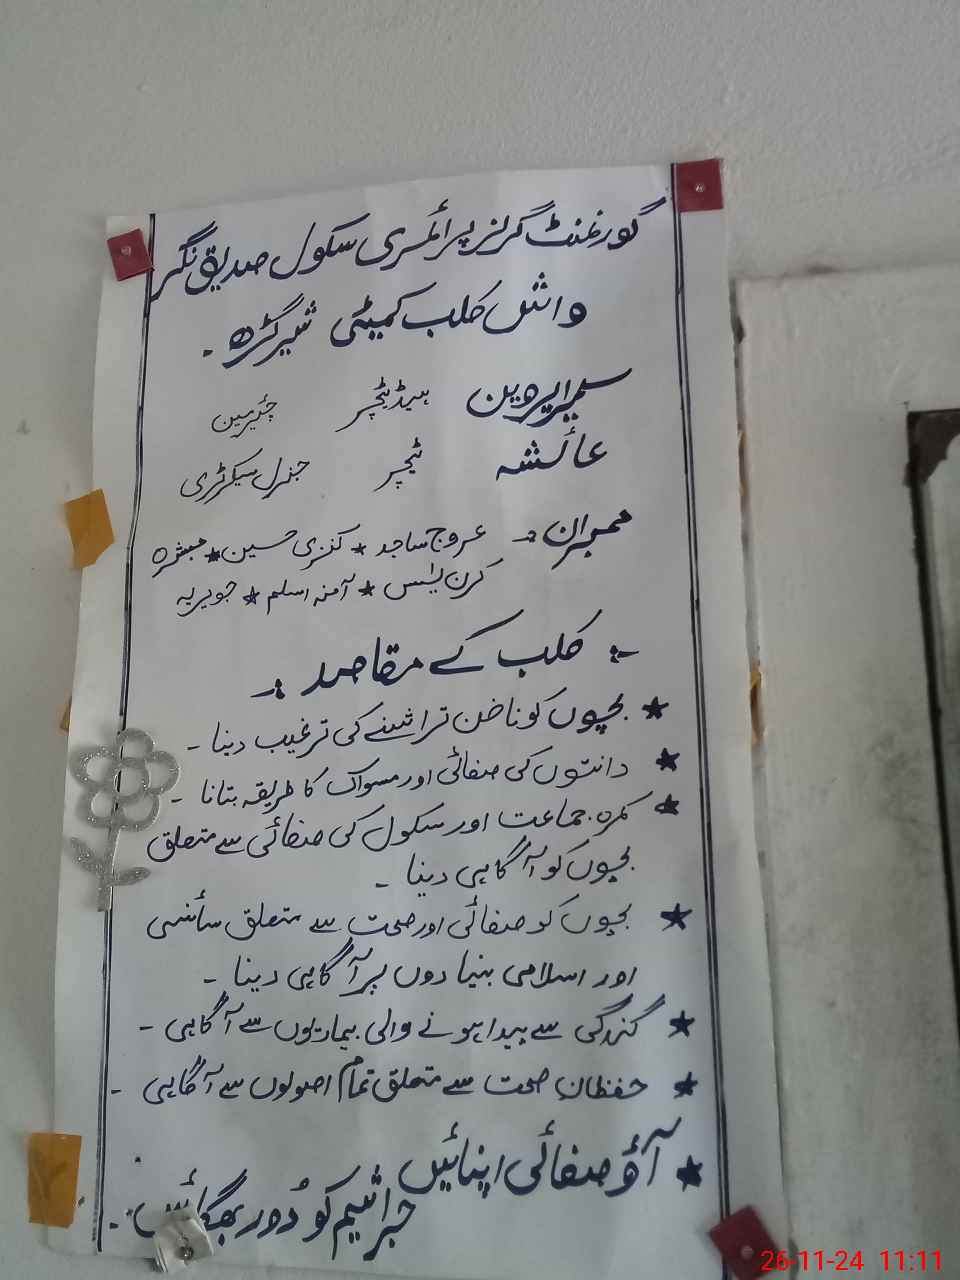 گورنمنٹ گرلز پرائمری سکول صدیق نگر
واش کلب کمیٹی شیرگڑھ ۔
سمیرا پروین ہیڈ ٹیچر چئیرمین
عائشہ ٹیچر جنرل سیکٹری
ممبران :۔ عروج ساجد ★ کنزیٰ حسین ★ مبشرہ
کرن یٰسین ★ آمنہ اسلم ★ جویریہ
:۔ کلب کے مقاصد :۔
★ بچوں کو ناخن تراشنے کی ترغیب دینا ۔
★ دانتوں کی صفائی اور مسواک کا طریقہ بتانا ۔
★ کمرہ جماعت اور سکول کی صفائی سے متعلق
بچوں کو آگاہی دینا ۔
★ بچوں کو صفائی اور صحت سے متعلق سائنسی
اور اسلامی بنیادوں پر آگاہی دینا ۔
★ گندگی سے پیدا ہونے والی بیماریوں سے آگاہی ۔
★ حفظانِ صحت سے متعلق تمام اصولوں سے آگاہی ۔
★ آؤ صفائی اپنائیں
جراثیم کو دُور بھگائیں ۔
26-11-24 11:11